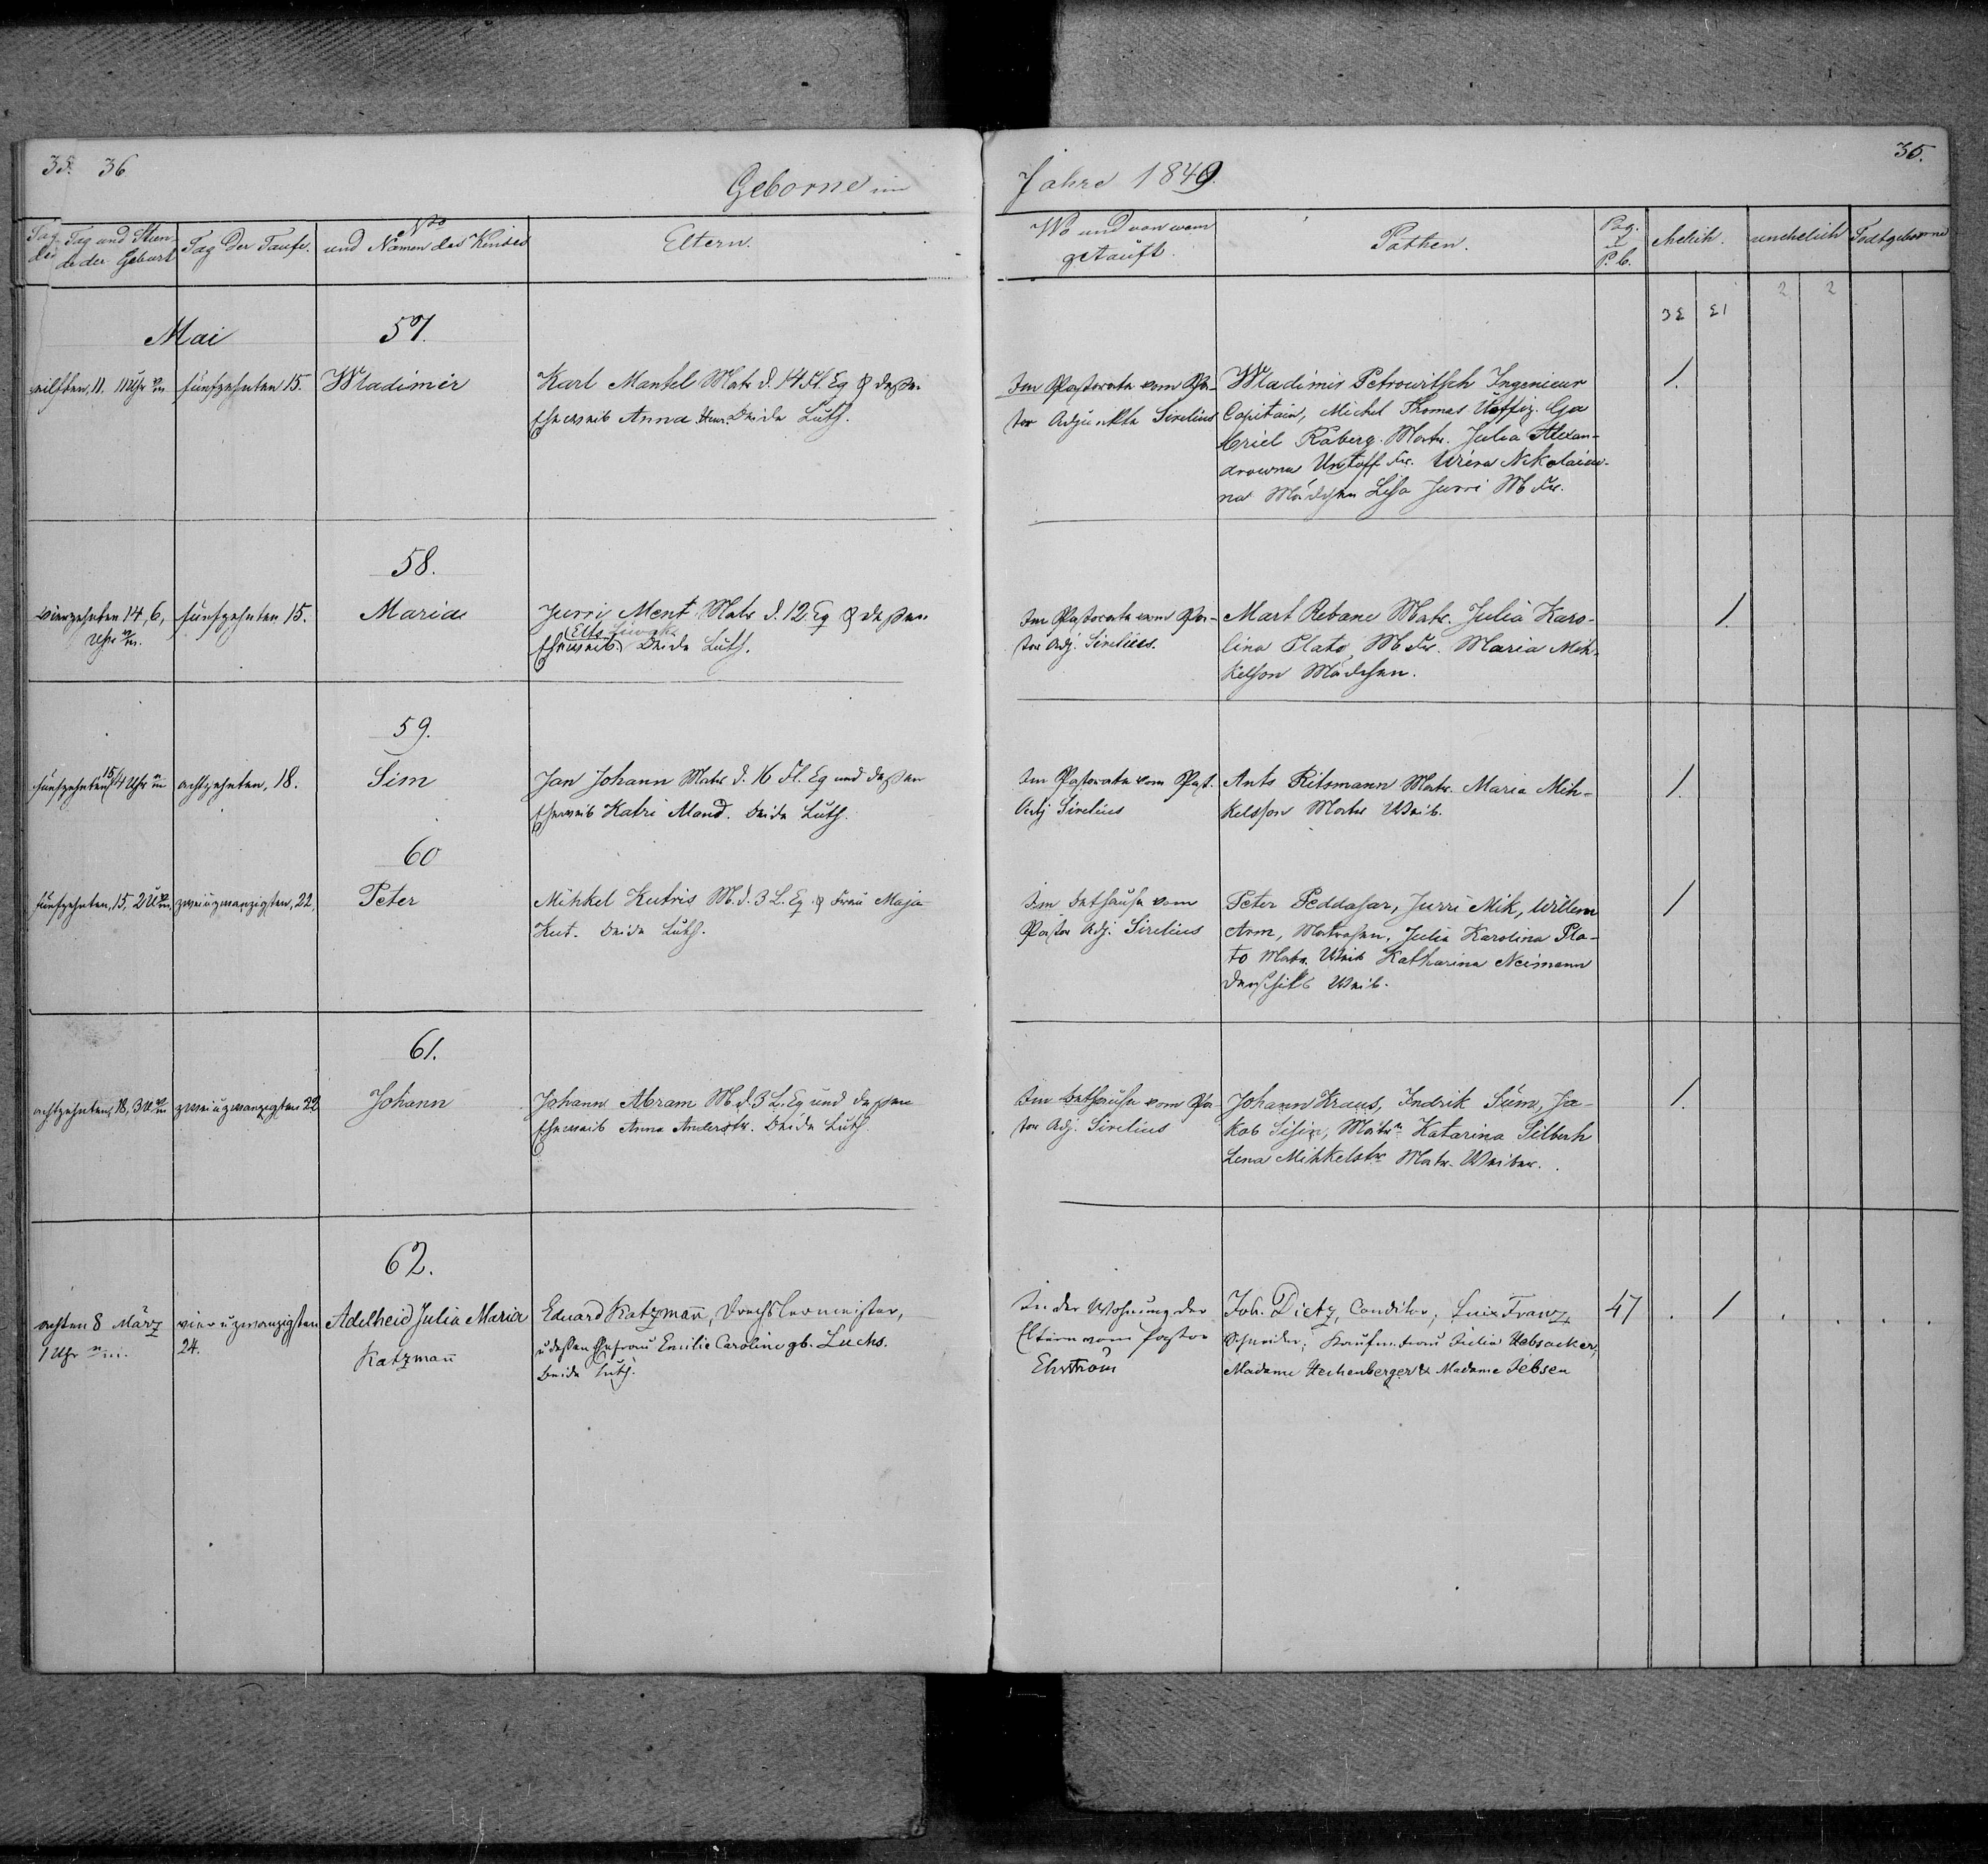 35. 36
Geborne im
Jahre 1849.
35.
Tag und Stun-
de der Geburt
Tag der Taufe.
No
und Namen des Kindes
Eltern.
Wo und von wem
getauft.
Pathen.
Pag.
P. b.
ehelich.
unehelich
Todtgeborne
32 13 2 2
Mai
57.
eilften, 11. 11 Uhr
fünfzehnten 15.
Wladimir
Karl Mantel Matr. d. 14 Fl. Eq & dessen
Eheweib Anna Beide Luth.
Im Pastorate vom Pas-
tor Adjunkte Sirelius
Wladimir Petrowitsch Ingenieur
Capitain, Michel Thomas Uoffiz. Ga
briel Raberg. Matr. Julia Alexan-
drowna Untoff Fr. Wiera Nikolaiew-
na Mädchen Lisa Jurri M Fr.
1.
58.
vierzehnten 14, 6,
Uhr
fünfzehnten 15.
Maria
Jurri Ment Matr. d. 12 Eq & dessen
Eheweib Beide Luth.
Im Pastorate vom Pas-
tor Adj. Sirelius.
Mart Rebane Matr. Julia Karo-
lina Plato, M Fr. Maria Mih-
kelson Mädchen.
1.
59.
fünfzehnten 15/4 Uhr
achtzehnten, 18.
Sim
Jan Johann Matr. d. 16 Fl. Eq und dessen
Eheweib Katri Mand. Beide Luth.
Im Pastorate vom Past.
Adj Sirelius
Ants Ritsmann Matr. Maria Mih-
kelsson Matr Weib.
1.
60
fünfzehnten, 15, 2 U
zweiuzwanzigsten, 22,
Peter
Mihkel Kutris M. d. 3 L. Eq. & Frau Maja
Kut. Beide Luth.
Im Bethause vom
Pastor Adj. Sirelius
Peter Peddasar, Jurri Mik, Willem
Arm, Matrosen, Julia Karolina Pla-
to Matr. Weib Katharina Neimann
Weib.
1
61.
achtzehnten, 18, 3 U
zweiuzwanzigsten 22
Johann
Johann Abram M. d. 3 L. Eq und dessen
Eheweib Anna Anderstr. Beide Luth.
Im Bethause vom Pas-
tor Adj. Sirelius
Johann Kraus, Indrik Süm, Ja-
kob Sisin, Matr. Katarina Silberh
Lena Mihkelstr Matr. Weiber.
1.
62.
achten 8 März
1 Uhr
vieruzwanzigsten
24.
Adelheid Julia Maria
Katzmañ
Eduard Katzmañ, Drechslermeister,
u dessen Ehefrau Emilie Caroline gb. Luchs.
Beide Luth.
In der Wohnung der
Eltern vom Pastor
Ehrström
Joh. Dietz, Conditor, Franz
Schneider; Kaufm. Frau Julie Hebsacker,
Madame Hechenberger & Madame Jebsen
47 . 1 . . . .